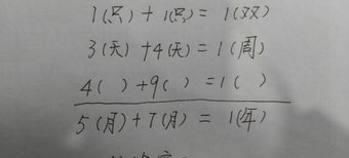 1(只) + 1(只) = 1(双)
3(天) + 4(天) = 1(周)
4( ) + 9( ) = 1( )
5(月) + 7(月) = 1(年)